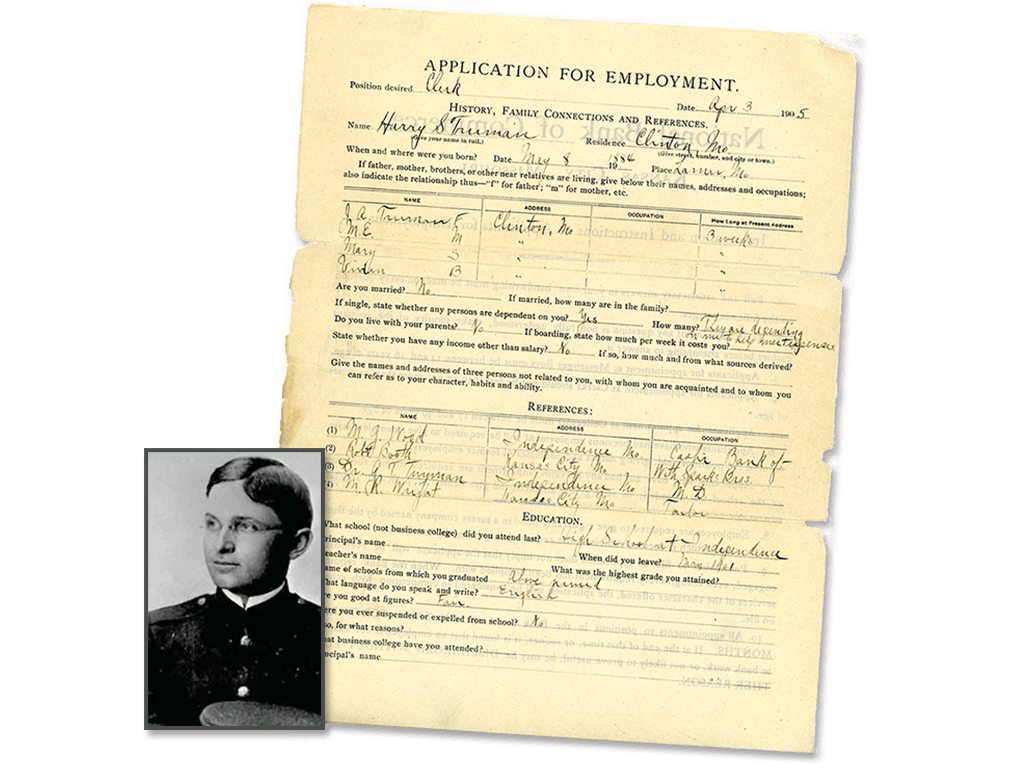 APPLICATION FOR EMPLOYMENT.
Position desired Clerk
Date Apr 3 1905
HISTORY, FAMILY CONNECTIONS AND REFERENCES.
Name Harry S Truman Residence Clinton, Mo.
(Give your name in full.) (Give street, number, and city or town.)
When and where were you born? Date May 8 1884 Place Lamar, Mo.
If father, mother, brothers, or other near relatives are living, give below their names, addresses and occupations;
also indicate the relationship thus—"f" for father; "m" for mother, etc.
NAME ADDRESS OCCUPATION How Long at Present Address
J. A. Truman F Clinton, Mo 3 weeks
M.E. M " "
Mary S " "
Vivian B " "
Are you married? No If married, how many are in the family?
If single, state whether any persons are dependent on you? Yes How many? They are depending
on me to help meet expenses
Do you live with your parents? No If boarding, state how much per week it costs you?
State whether you have any income other than salary? No If so, how much and from what sources derived?
Give the names and addresses of three persons not related to you, with whom you are acquainted and to whom you
can refer as to your character, habits and ability.
REFERENCES:
NAME ADDRESS OCCUPATION
(1) Wood Independence Mo. Bank of
(2) Robt Booth Kansas City Mo. With Bros.
(3) Dr. G T Twyman Independence Mo M. D.
M. R. Wright Kansas City Mo Tailor
EDUCATION.
What school (not business college) did you attend last? High School at Independence
rincipal's name When did you leave? May 1901
eacher's name What was the highest grade you attained?
ame of schools from which you graduated Above named
hat language do you speak and write? English
re you good at figures? Fair
ere you ever suspended or expelled from school? No
so, for what reasons?
hat business college have you attended?
incipal's name